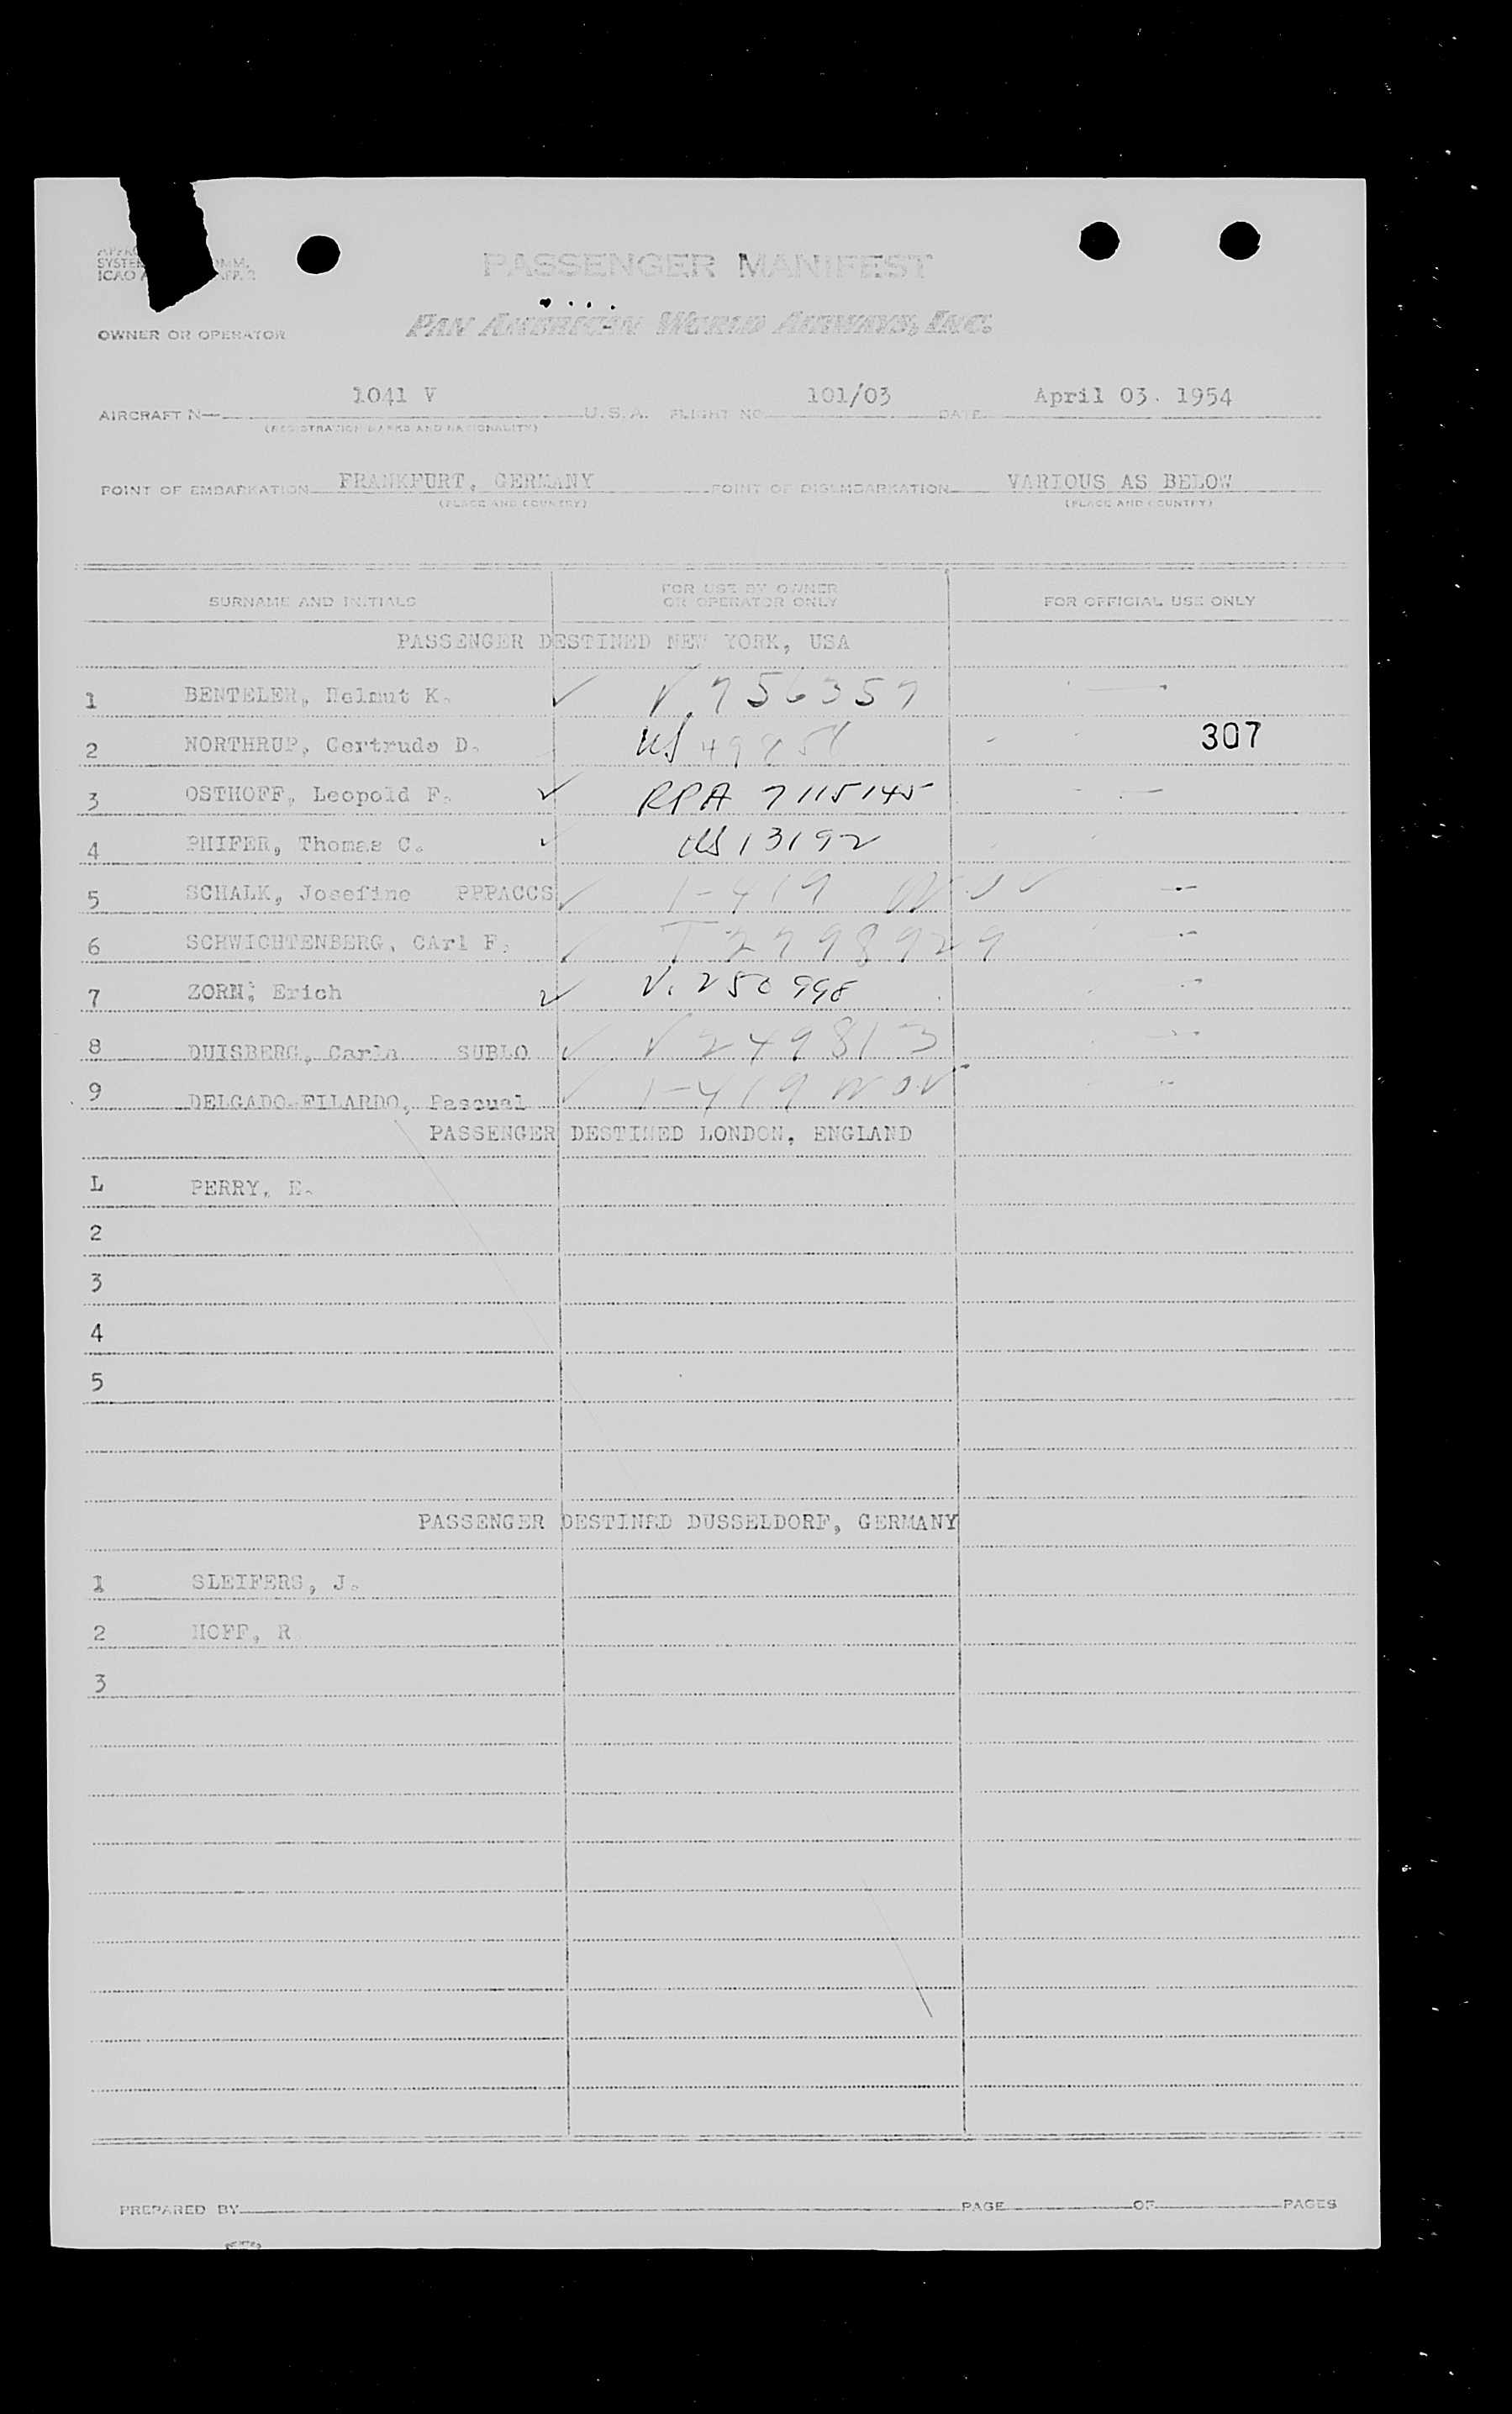 SYSTE OMM.
ICAO AFP. 2
PASSENGER MANIFEST
OWNER OR OPERATOR PAN AMERICAN WORLD AIRWAYS, INC.
AIRCRAFT N— 1041 V U.S.A. FLIGHT NO 101/03 DATE April 03. 1954
(REGISTRATION MARKS AND NATIONALITY)
POINT OF EMBARKATION FRANKFURT, GERMANY POINT OF DISEMBARKATION VARIOUS AS BELOW
(PLACE AND COUNTRY) (PLACE AND COUNTRY)
SURNAME AND INITIALS FOR USE BY OWNER OR OPERATOR ONLY FOR OFFICIAL USE ONLY
PASSENGER DESTINED NEW YORK, USA
1 BENTELER, Helmut K. ✓ V. 756357
2 NORTHRUP, Gertrude D. US 307
3 OSTHOFF, Leopold F. ✓ RPA 7115145
4 PHIFER, Thomas C. ✓ US 13192
5 SCHALK, Josefine PPPACCS ✓ 1-419
6 SCHWICHTENBERG, CArl F. ✓ T 2798929
7 ZORN, Erich ✓ V. 250998
8 DUISBERG, Carla SUBLO ✓ V 249813
9 DELGADO-FILARDO, Pascual ✓ 1-419 NOV
PASSENGER DESTINED LONDON, ENGLAND
L PERRY, E.
2
3
4
5
PASSENGER DESTINED DUSSELDORF, GERMANY
1 SLEIFERS, J.
2 HOFF, R
3
PREPARED BY PAGE OF PAGES